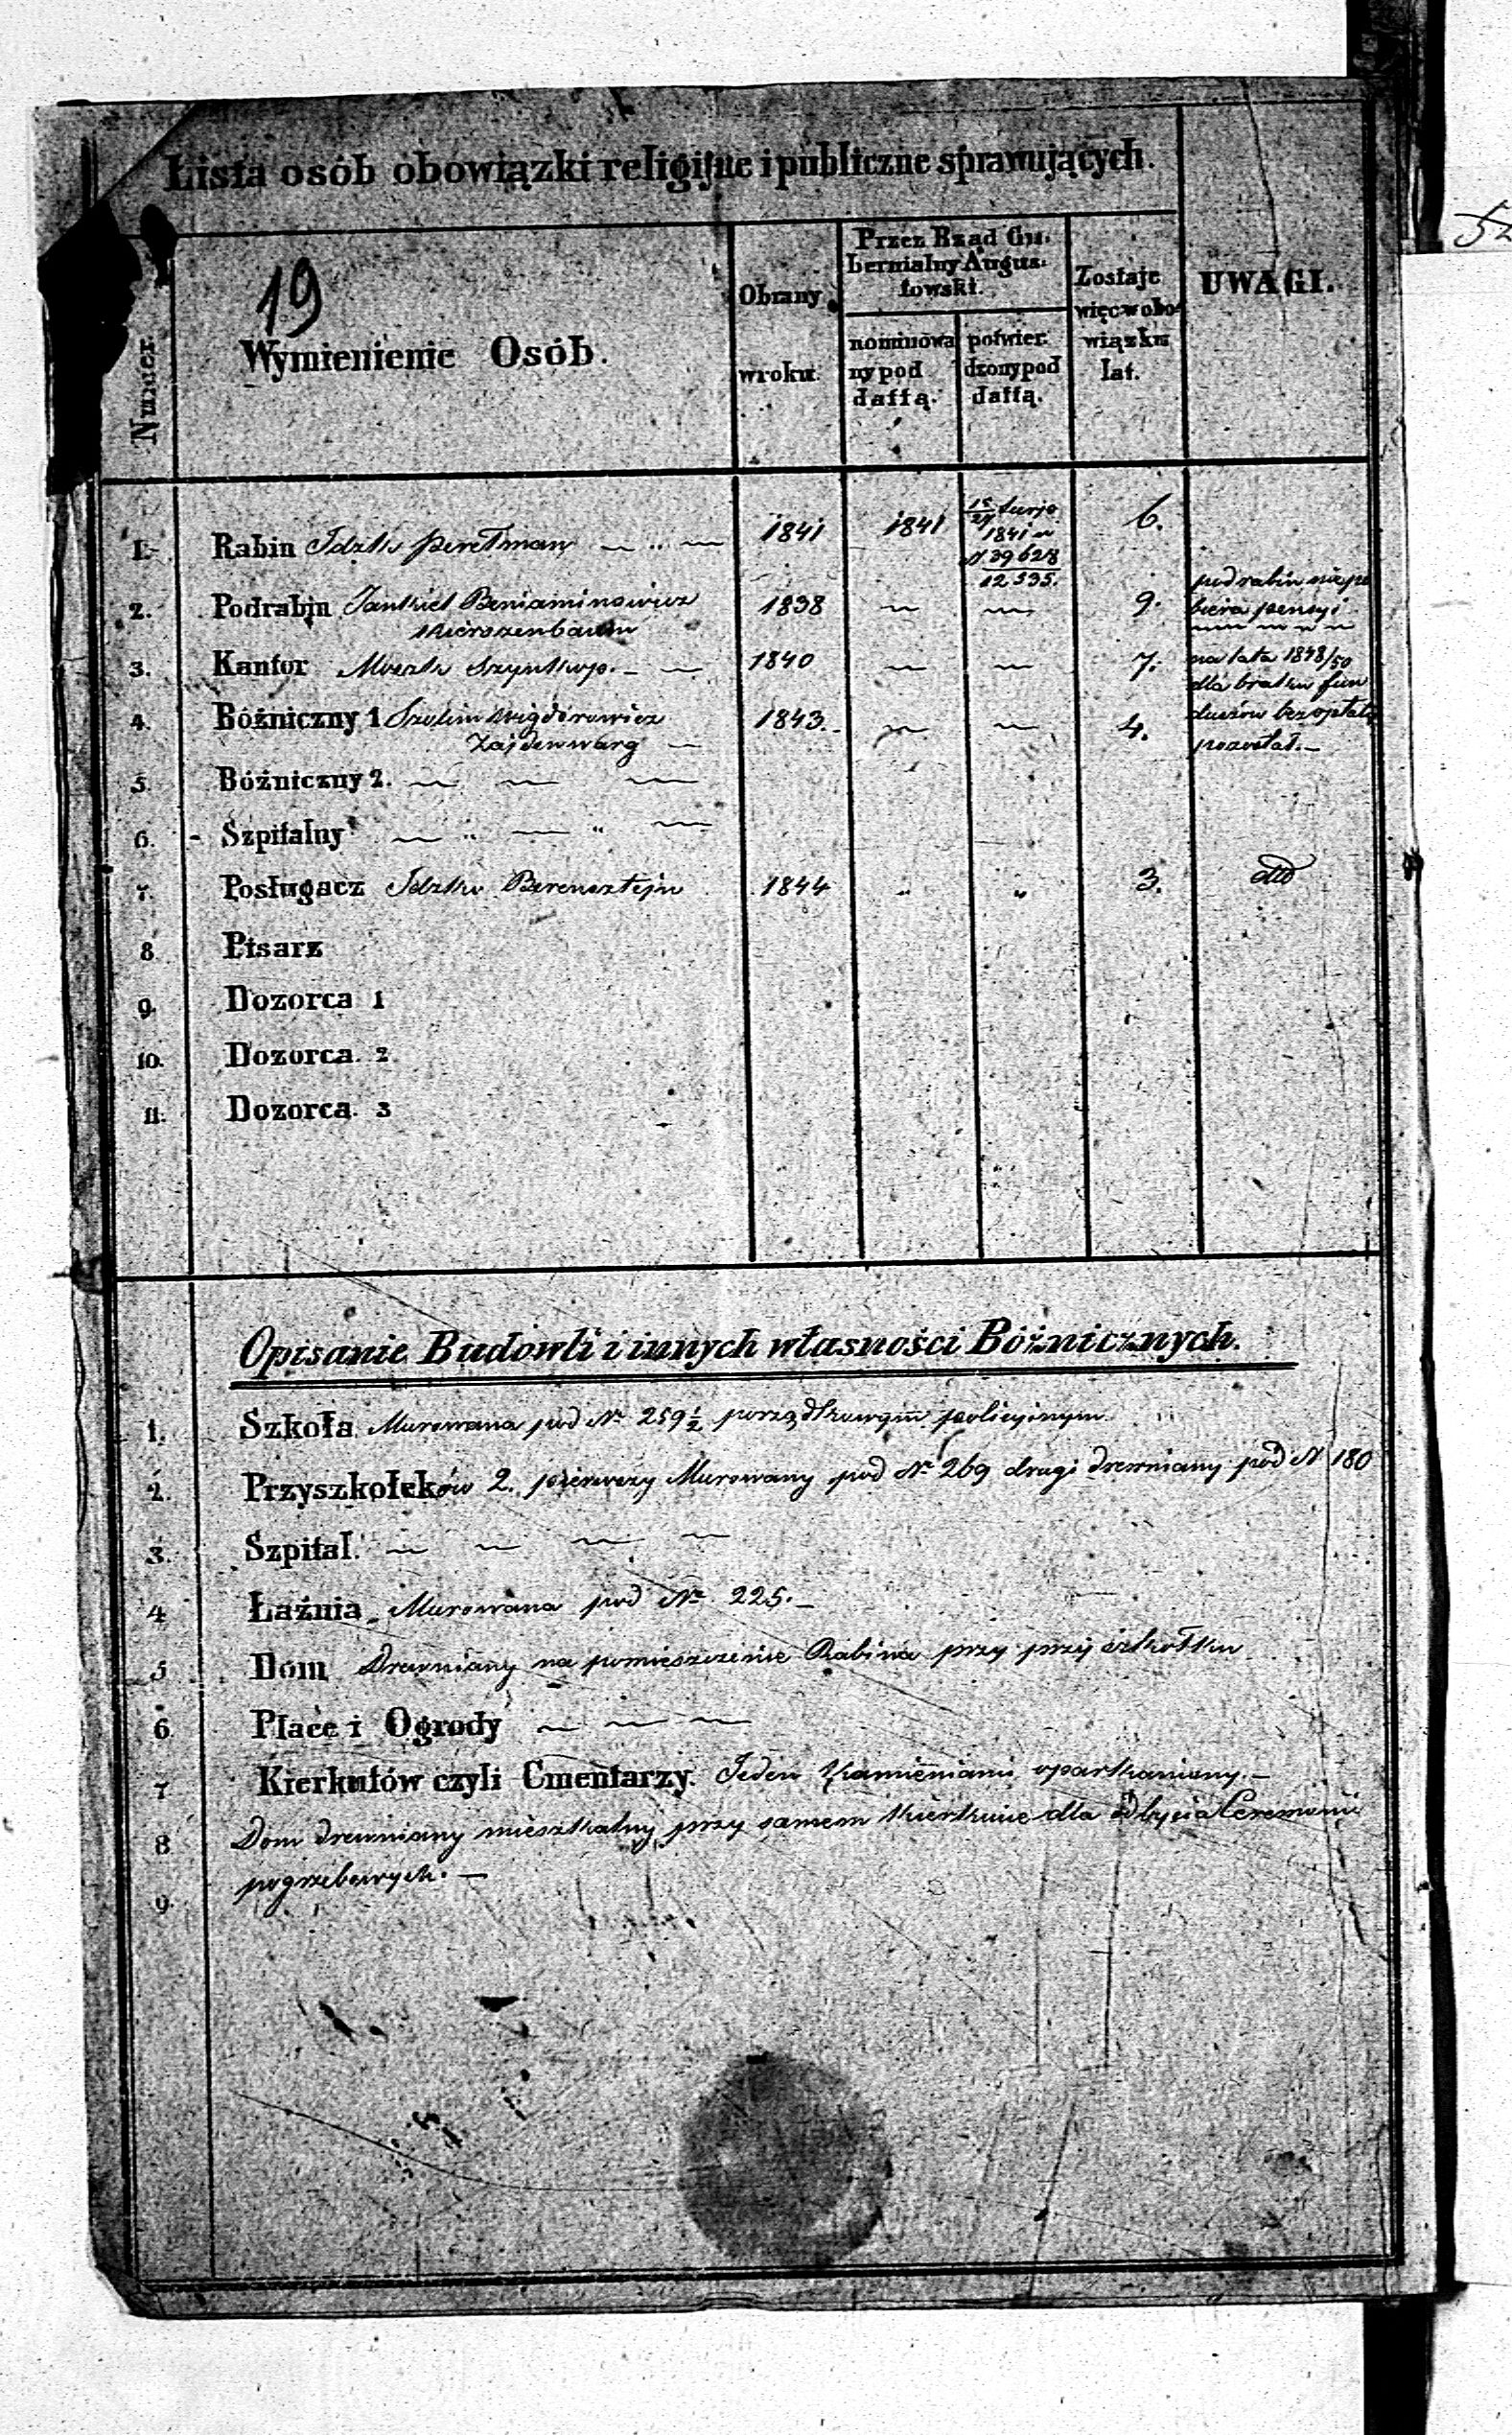 52
Lista osób obowiązki religijne i publiczne sprawujących.
19
Numer
Wymienienie Osób.
Obrany w roku.
Przez Rząd Gubernialny Augustowski.
nominowany pod dattą.
potwierdzony pod dattą.
Zostaje więc w obowiązku lat.
UWAGI.
1. Rabin Idzko Perelman 1841 1841 1841 N 39628 / 12535. 6.
2. Podrabin Jankiel Beniaminowicz 1838 9. podrabin nie po
biera pensyi
3. Kantor Moszk 1840 7. na lata 1848/50
dla braku fun
4. Bóżniczny 1 Szolim Wigdorowicz 1843. 4. duszów bez opłaty
Zajdenwarg pozostał.
5. Bóżniczny 2.
6. Szpitalny
7. Posługacz Idzko Berensztejn 1844 „ „ 3. dtto
8 Pisarz
9. Dozorca 1
10. Dozorca. 2.
11. Dozorca. 3
Opisanie Budowli i innych własności Bóżnicznych.
1. Szkoła Murowana pod Nr 259½ porządkowym policyjnym.
2. Przyszkołków 2. pierwszy Murowany pod Nr 269 drugi drewniany pod N 180
3. Szpital.
4 Łaźnia Murowana pod Nr 225.
5 Dom Drewniany na pomieszczenie Rabina przy przyszkołku
6 Place i Ogrody
7 Kierkutów czyli Cmentarzy. Jeden Kamieniami oparkaniony.
8 Dom drewniany mieszkalny przy samem kierkucie dla odbycia Ceremonii
pogrzebowych.
9.